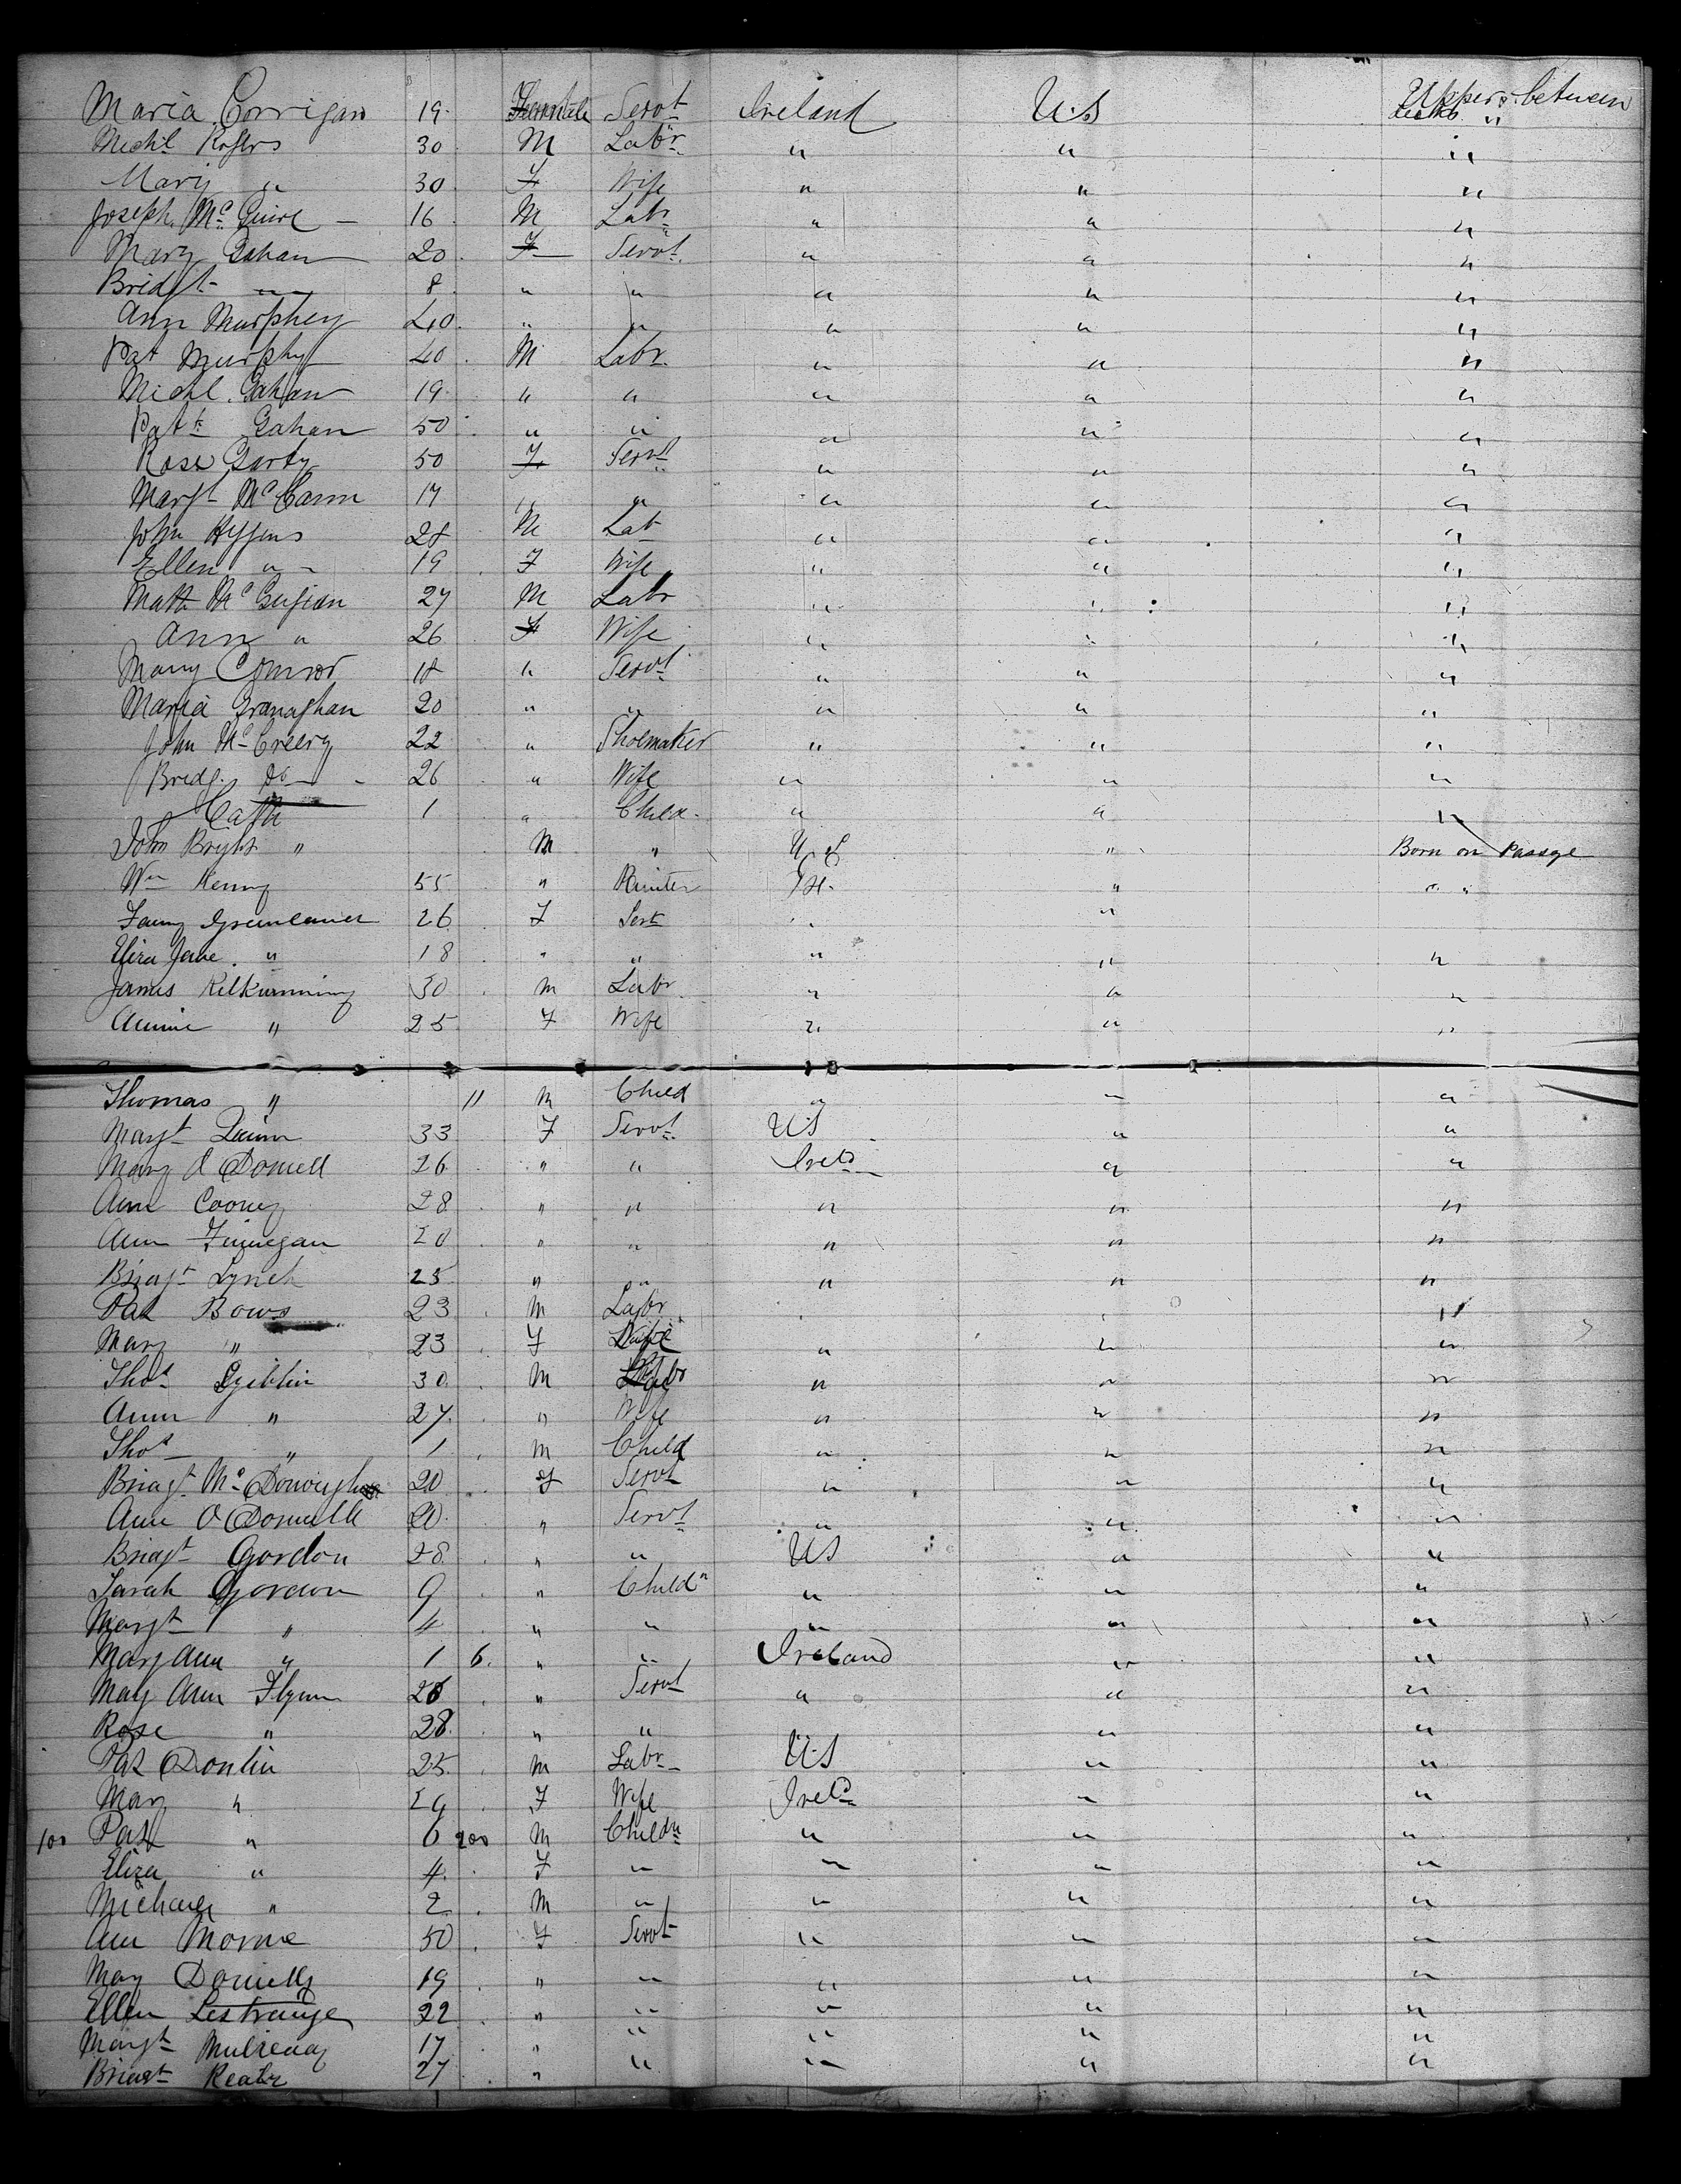 Maria Corrigan 19 Female Servt Ireland U.S Upper between decks "
Michl Rogers 30 M Labr " " "
Mary " 30 F Wife " " "
Joseph McGuire — 16 M Labr " " "
Mary Gahan 20 F Servt " " "
Bridgt " 8 " " " " "
Ann Murphey 40 " " " " "
Pat Murphy 40 M Labr " " "
Michl Gahan 19 " " " " "
Patk Gahan 50 " " " " "
Rose 50 F Servt " " "
Margt McCann 17 " " " " "
John 28 M Lab " " "
Ellen " 19 F Wife " " "
Matt 27 M Labr " " "
Ann " 26 F Wife " " "
Mary Connor 18 " Servt " " "
Maria Granaghan 20 " " " " "
John McCreery 22 " Shoemaker " " "
Bridg. Do 26 " Wife " " "
Cath 1 " Child " " "
John Bright " M " U S " Born on Passge
Wm Kenny 55 " " " "
Fanny 26 F Sert " "
Eliza Jane " 18 " " " " "
James Kilkumming 30 M Labr " " "
Annie " 25 F Wife " " "
Thomas " 11 M Child " " "
Margt Quinn 33 F Servt US " "
Mary O Donnell 26 " " Ireld " "
Ann Cooney 28 " " " " "
Ann Finnegan 20 " " " " "
Bridgt Lynch 25 " " " " "
Pat Bows 23 M Labr " " "
Mary " 23 F Wife " " "
Thos Giblin 30 M Labr " " "
Annn " 27 " Wife " " "
Thos " 1 M Child " " "
Bridgt McDonough 20 F Servt " " "
Ann O Donnelle 20 " Servt " " "
Bridgt Gordon 28 " " US " "
Sarah Gordon 9 " Childn " " "
Margt " 4 " " " " "
Mary Ann " 1 6 " " Ireland " "
May Ann Flynn 26 " Servt " " "
Rose " 28 " " " " "
Pat Donlin 25 M Labr US " "
Mary " 29 F Wife Ireld " "
100 Pat " 6 200 M Childn " " "
Eliza " 4 F " " " "
Michael " 2 M " " " "
Ann 50 F Servt " " "
May Donnelly 19 " " " " "
Ellen Lestrange 22 " " " " "
Margt 17 " " " " "
Bridgt 27 " " " " "